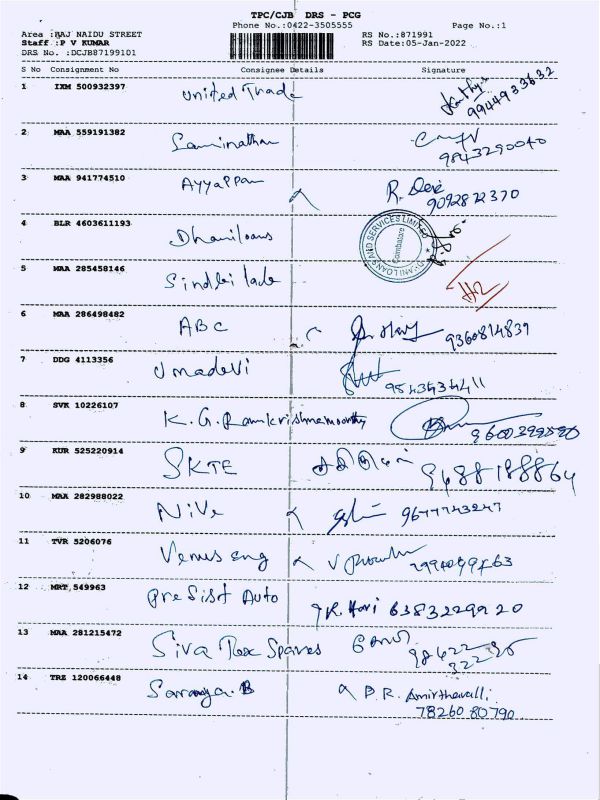 TPC/CJB DRS - PCG
Phone No.:0422-3505555 Page No.:1
Area :RAJ NAIDU STREET RS No.:871991
Staff :P V KUMAR RS Date:05-Jan-2022
DRS No. :DCJB87199101
S No Consignment No Consignee Details Signature
1 IXM 500932397 United Trade
9944933632
2 MAA 559191382 Saminathan
9843290040
3 MAA 941774510 Ayyappan R. Devi
9092872370
4 BLR 4603611193 Dhaniloans
DHANI LOANS AND SERVICES LIMITED Coimbatore
5 MAA 285458146
6 MAA 286498482 ABC 9360814839
7 DDG 4113356 Umadevi
8 SVK 10226107 K.G. Ramkrishnamoorthy
9 KUR 525220914 SKTE 9688188864
10 MAA 282988022 Nive 9677743247
11 TVR 5206076 Venus eng
12 MRT 549963 Presist Auto R. Hari 6383229920
13 MAA 281215472 Siva Tex Spares
98422
32226
14 TRZ 120066448 Saranya.B P.R. Amirthavalli
7826080790